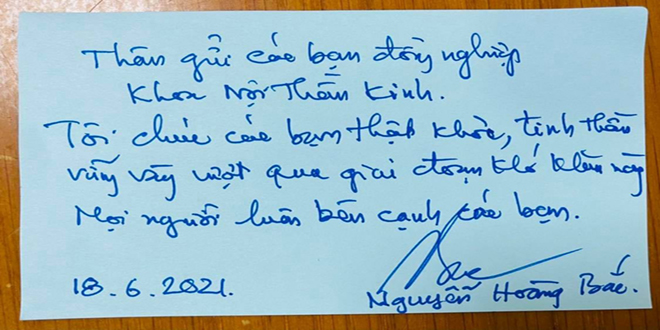 Thân gửi các bạn đồng nghiệp
Khoa Nội Thần Kinh.
Tôi chúc các bạn thật khỏe, tinh thần
vững vàng vượt qua giai đoạn khó khăn này
Mọi người luôn bên cạnh các bạn.
18.6.2021.
Nguyễn Hoàng Bắc.